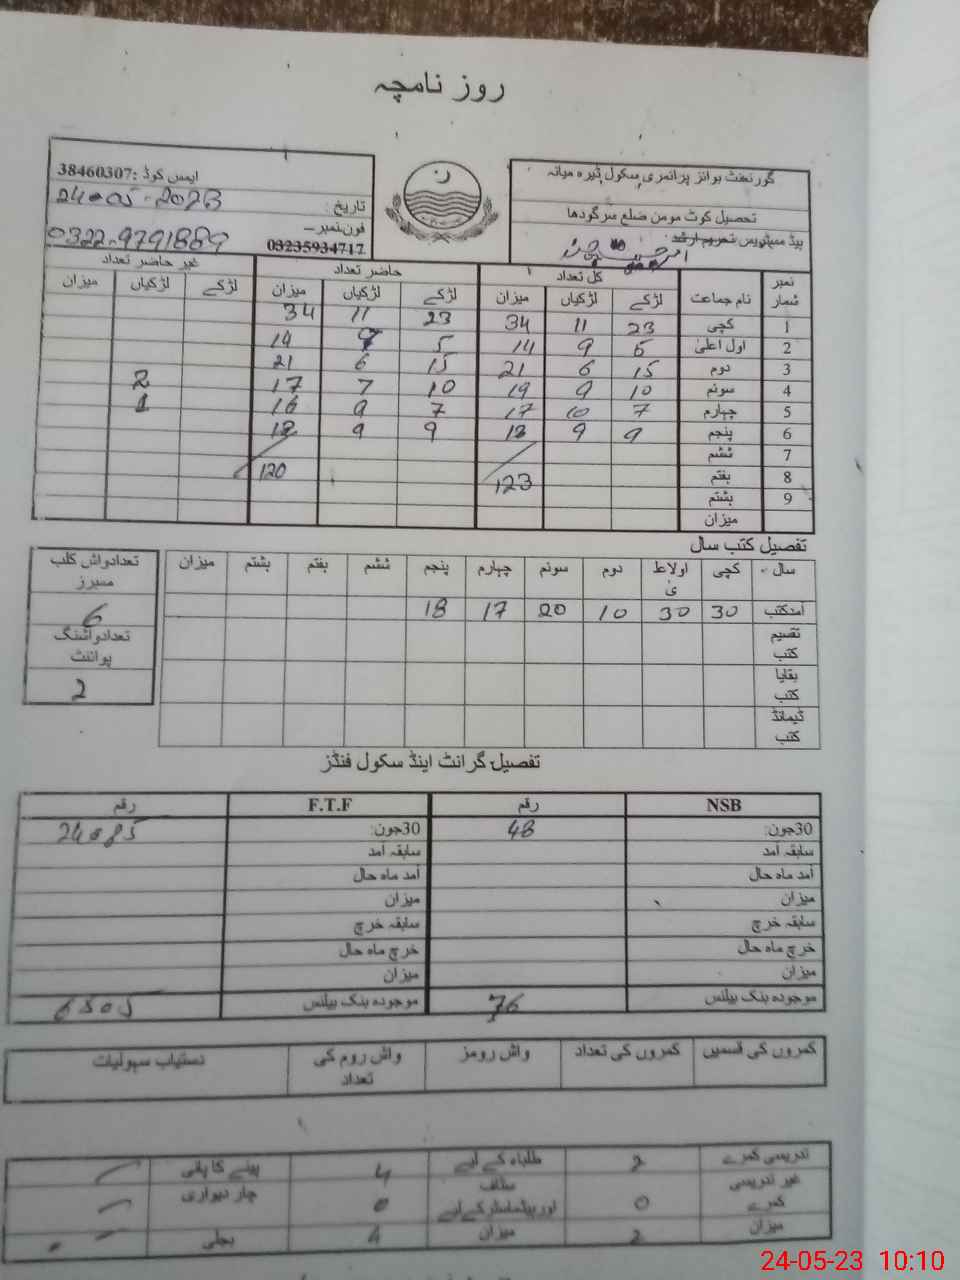 روز نامچہ
گورنمنٹ بوائز پرائمری سکول ڈیرہ میانہ
تحصیل کوٹ مومن ضلع سرگودھا
ہیڈ مسٹریس تحریم ارشد
ایمس کوڈ :38460307
تاریخ : 24-05-2023
فون نمبر 03235934717
0322-9791889
نمبر شمار نام جماعت کل تعداد حاضر تعداد غیر حاضر تعداد
لڑکے لڑکیاں میزان لڑکے لڑکیاں میزان لڑکے لڑکیاں میزان
1 کچی 23 11 34 23 11 34
2 اول اعلیٰ 5 9 14 5 9 14
3 دوم 15 6 21 15 6 21
4 سوئم 10 9 19 10 7 17 2
5 چہارم 7 10 17 7 9 16 1
6 پنجم 9 9 18 9 9 18
7 ششم
8 ہفتم 123 120
9 ہشتم
میزان
تفصیل کتب سال
سال کچی اولاعلیٰ دوم سوئم چہارم پنجم ششم ہفتم ہشتم میزان
آمدکتب 30 30 10 20 17 18
تقسیم کتب
بقایا کتب
ڈیمانڈ کتب
تعدادواش کلب ممبرز
6
تعدادواشنگ پوائنٹ
2
تفصیل گرانٹ اینڈ سکول فنڈز
NSB رقم F.T.F رقم
30جون: 48 30جون: 24085
سابقہ آمد سابقہ آمد
آمد ماہ حال آمد ماہ حال
میزان میزان
سابقہ خرچ سابقہ خرچ
خرچ ماہ حال خرچ ماہ حال
میزان میزان
موجودہ بنک بیلنس 76 موجودہ بنک بیلنس 6505
کمروں کی قسمیں کمروں کی تعداد واش رومز واش روم کی تعداد دستیاب سہولیات
تدریسی کمرے 2 طلباء کے لیے 4 پینے کا پانی
غیر تدریسی کمرے 0 سٹاف اورہیڈماسٹرکےلیے 0 چار دیواری
میزان 2 میزان 4 بجلی
24-05-23 10:10